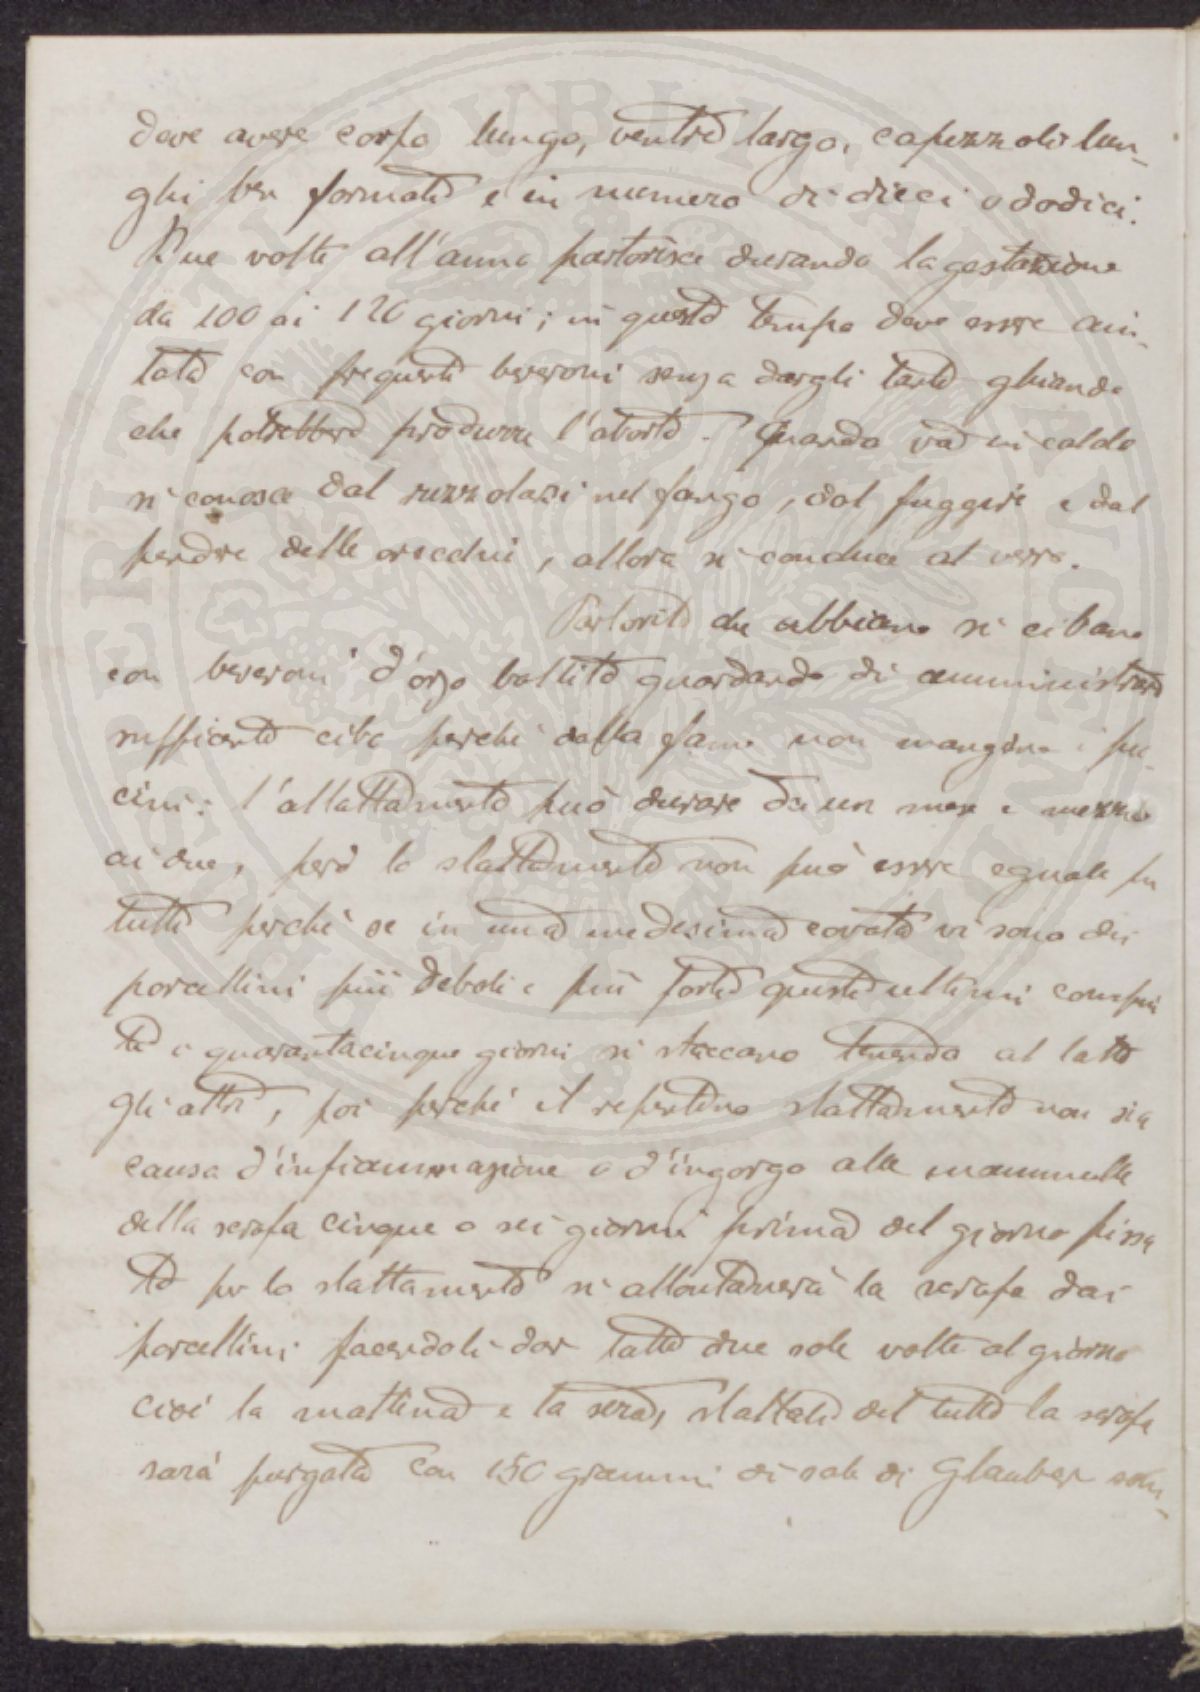 deve avere corpo lungo, ventre largo, capezzoli lun-
ghi ben formati e in numero di dieci o dodici.
Due volte all'anno partorisce durando la gestazione
da 100 ai 120 giorni; in questo tempo deve essere aiu-
tata con frequenti beveroni senza dargli tante ghiande
che potrebbero produrre l'aborto. Quando va in caldo
si conosce dal ruzzolarsi nel fango, dal fuggire e dal
pendere delle orecchie, allora si conduce al verro.
Partorito che abbiano si cibano
con beveroni d'orzo bollito guardando di amministrare
sufficiente cibo perché dalla fame non mangino i pic-
cini: l'allattamento può durare da un mese e mezzo
ai due, però lo slattamento non può essere eguale per
tutti perché se in una medesima covata vi sono dei
porcellini più deboli e più forti questi ultimi compiu
ti i quarantacinque giorni si staccano tenendo al latte
gli altri, poi perché il repentino slattamento non sia
causa d'infiammazione o d'ingorgo alle mammelle
della scrofa cinque o sei giorni prima del giorno fissa
to per lo slattamento si allontanerà la scrofa dai
porcellini facendoli dar latte due sole volte al giorno
cioè la mattina e la sera, slattati del tutto la scrofa
sarà purgata con 150 grammi di sale di Glauber solu-